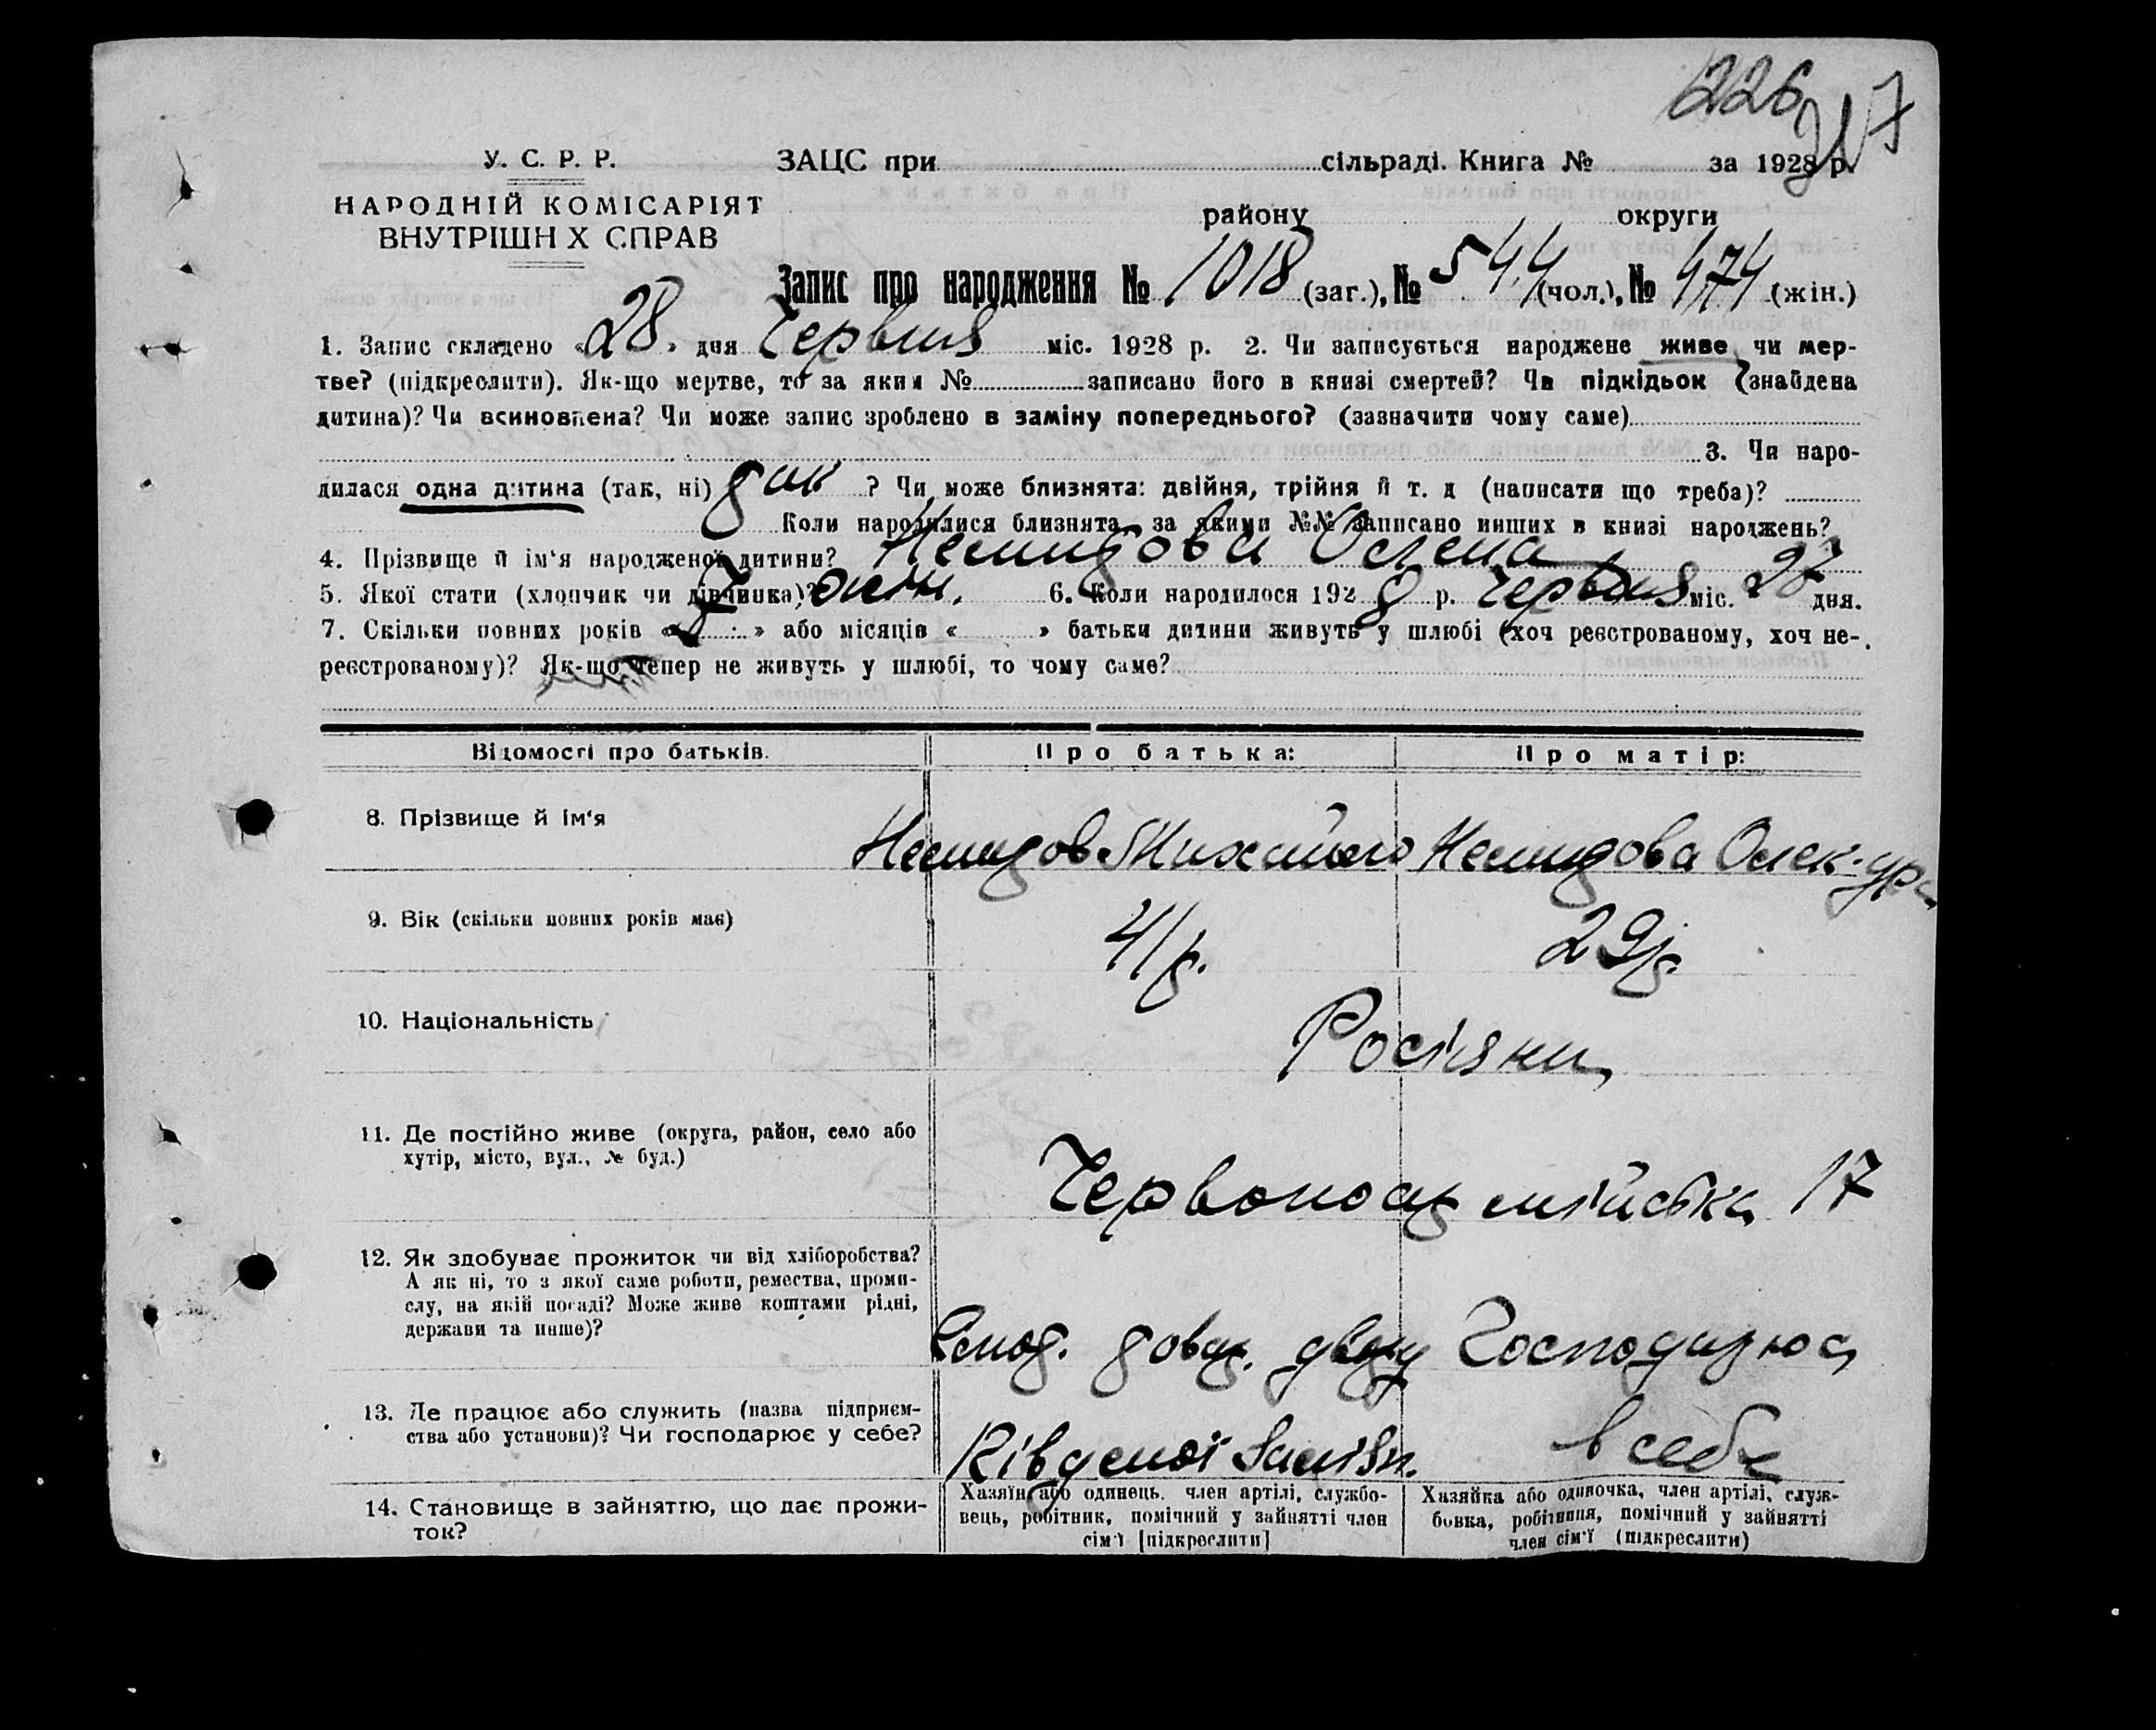 226
217
У. С. Р. Р.
НАРОДНІЙ КОМІСАРІЯТ
ВНУТРІШН Х СПРАВ
ЗАЦС при сільраді. Книга № за 1928 р.
району округи
Запис про народження № 1018 (заг.), № 544 (чол.), № 474 (жін.)
1. Запис складено «28» дня Червня міс. 1928 р. 2. Чи записується народжене живе чи мер-
тве? (підкреслити). Як-що мертве, то за яким № записано його в книзі смертей? Чи підкідьок (знайдена
дитина)? Чи всиновлена? Чи може запис зроблено в заміну попереднього? (зазначити чому саме)
3. Чи наро-
дилася одна дитина (так, ні) ? Чи може близнята: двійня, трійня й т. д (написати що треба)?
Коли народилися близнята, за якими №№ записано инших в книзі народжень?
4. Прізвище й ім'я народженої дитини? Олена
5. Якої стати (хлопчик чи дівчинка)? жін. 6. Коли народилося 1928 р. Червня міс. дня.
7. Скільки повних років « » або місяців « » батьки дитини живуть у шлюбі (хоч реєстрованому, хоч не-
реєстрованому)? Як-що тепер не живуть у шлюбі, то чому саме?
Відомості про батьків. Про батька: Про матір:
8. Прізвище й ім'я Михайло Олек-др
9. Вік (скільки повних років має) 41 р. 29 р.
10. Національність Росіяни
11. Де постійно живе (округа, район, село або
хутір, місто, вул., № буд.)
Червоноармійська 17
12. Як здобуває прожиток чи від хліборобства?
А як ні, то з якої саме роботи, ремества, проми-
слу, на якій посаді? Може живе коштами рідні,
держави та инше)?
двору Господарює
13. Де працює або служить (назва підприєм-
ства або установи)? Чи господарює у себе?
Південої Залізн. в себе
14. Становище в зайняттю, що дає прожи-
ток?
Хазяїн або одинець, член артілі, службо-
вець, робітник, помічний у зайнятті член
сім'ї [підкреслити]
Хазяйка або одиночка, член артілі, служ-
бовка, робітниця, помічний у зайнятті
член сім'ї (підкреслити)